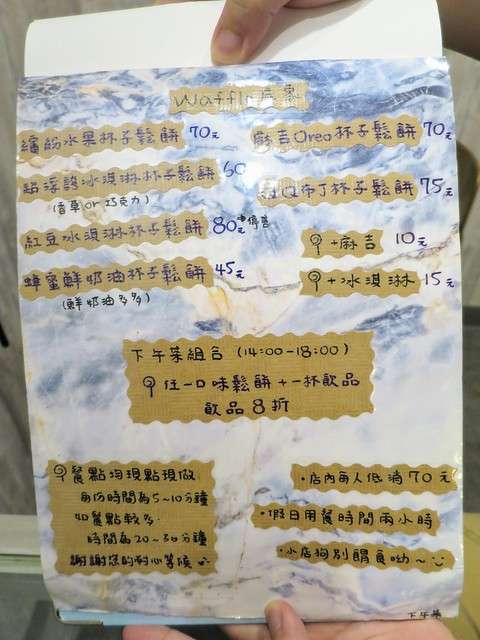 Waffle 居家
繽紛水果杯子鬆餅 70元
超浮誇冰淇淋杯子鬆餅 60
(香草or 巧克力)
紅豆冰淇淋杯子鬆餅 80元 暫停售
蜂蜜鮮奶油杯子鬆餅 45元
(鮮奶油多多)
麻吉Oreo杯子鬆餅 70元
QQ布丁杯子鬆餅 75元
+麻吉 10元
+冰淇淋 15元
下午茶組合 (14:00-18:00)
任一口味鬆餅+一杯飲品
飲品8折
餐點均現點現做
每份時間為5~10分鐘
如餐點較多
時間為20~30分鐘
謝謝您的耐心等候
·店內每人低消70元
·假日用餐時間兩小時
·小店狗別餵食呦~
下午茶